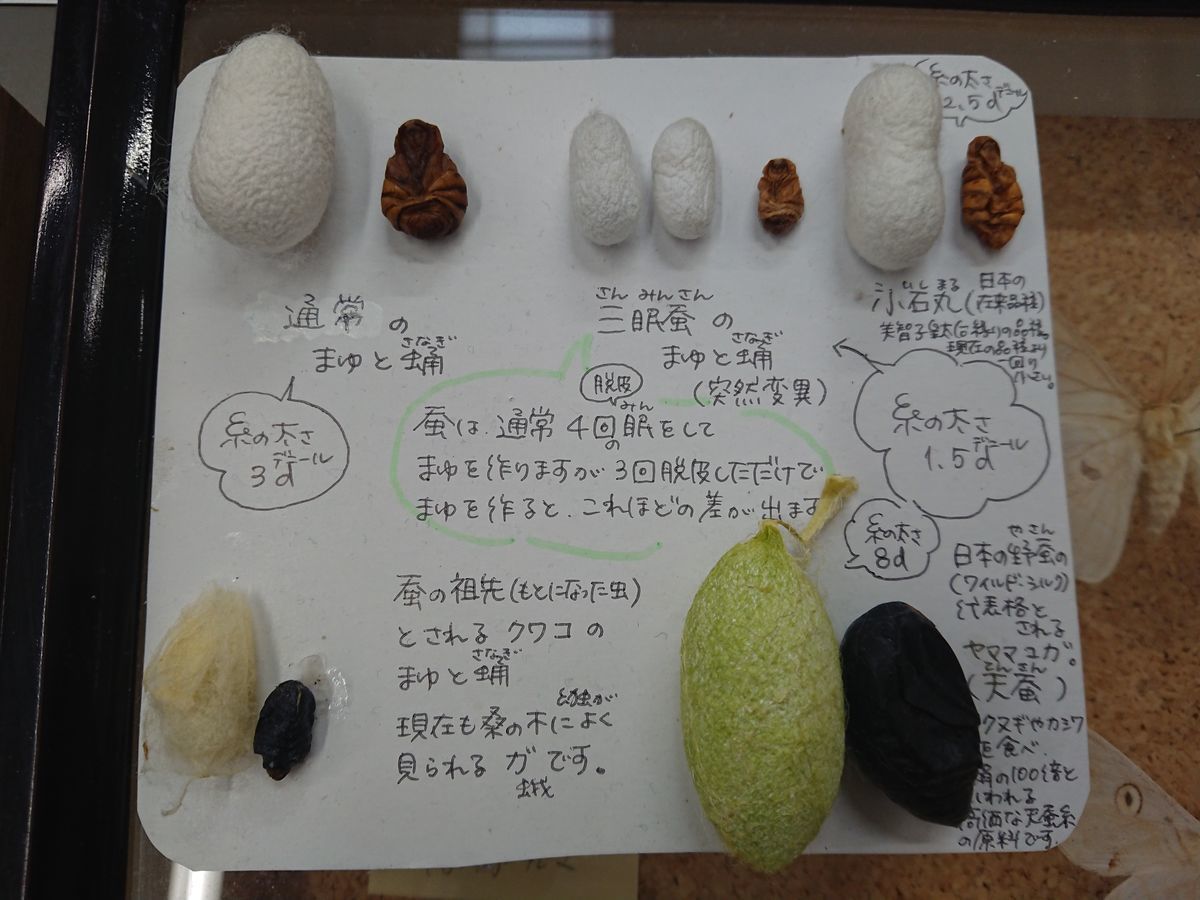 通常の
まゆと蛹
さなぎ
糸の太さ
デニール
3d
さんみんさん
三眠蚕の
さなぎ
まゆと蛹
(突然変異)
脱皮
みん
蚕は通常4回の眠をして
まゆを作りますが3回脱皮しただけで
まゆを作ると、これほどの差が出ます
糸の太さ
デニール
2.5d
いしまる
小石丸(日本の
在来品種)
美智子皇太后縁りの品種。
現在の品種より
一回り
小さい。
糸の太さ
デニール
1.5d
蚕の祖先(もとになった虫)
とされるクワコの
さなぎ
まゆと蛹
現在も桑の木によく
見られるガです。
蛾
糸の太さ
8d
やさん
日本の野蚕の
(ワイルドシルク)
代表格と
される
ヤママユガ。
てんさん
(天蚕)
クヌギやカシワ
を食べ、
絹の100倍と
いわれる
高価な天蚕糸
の原料です。